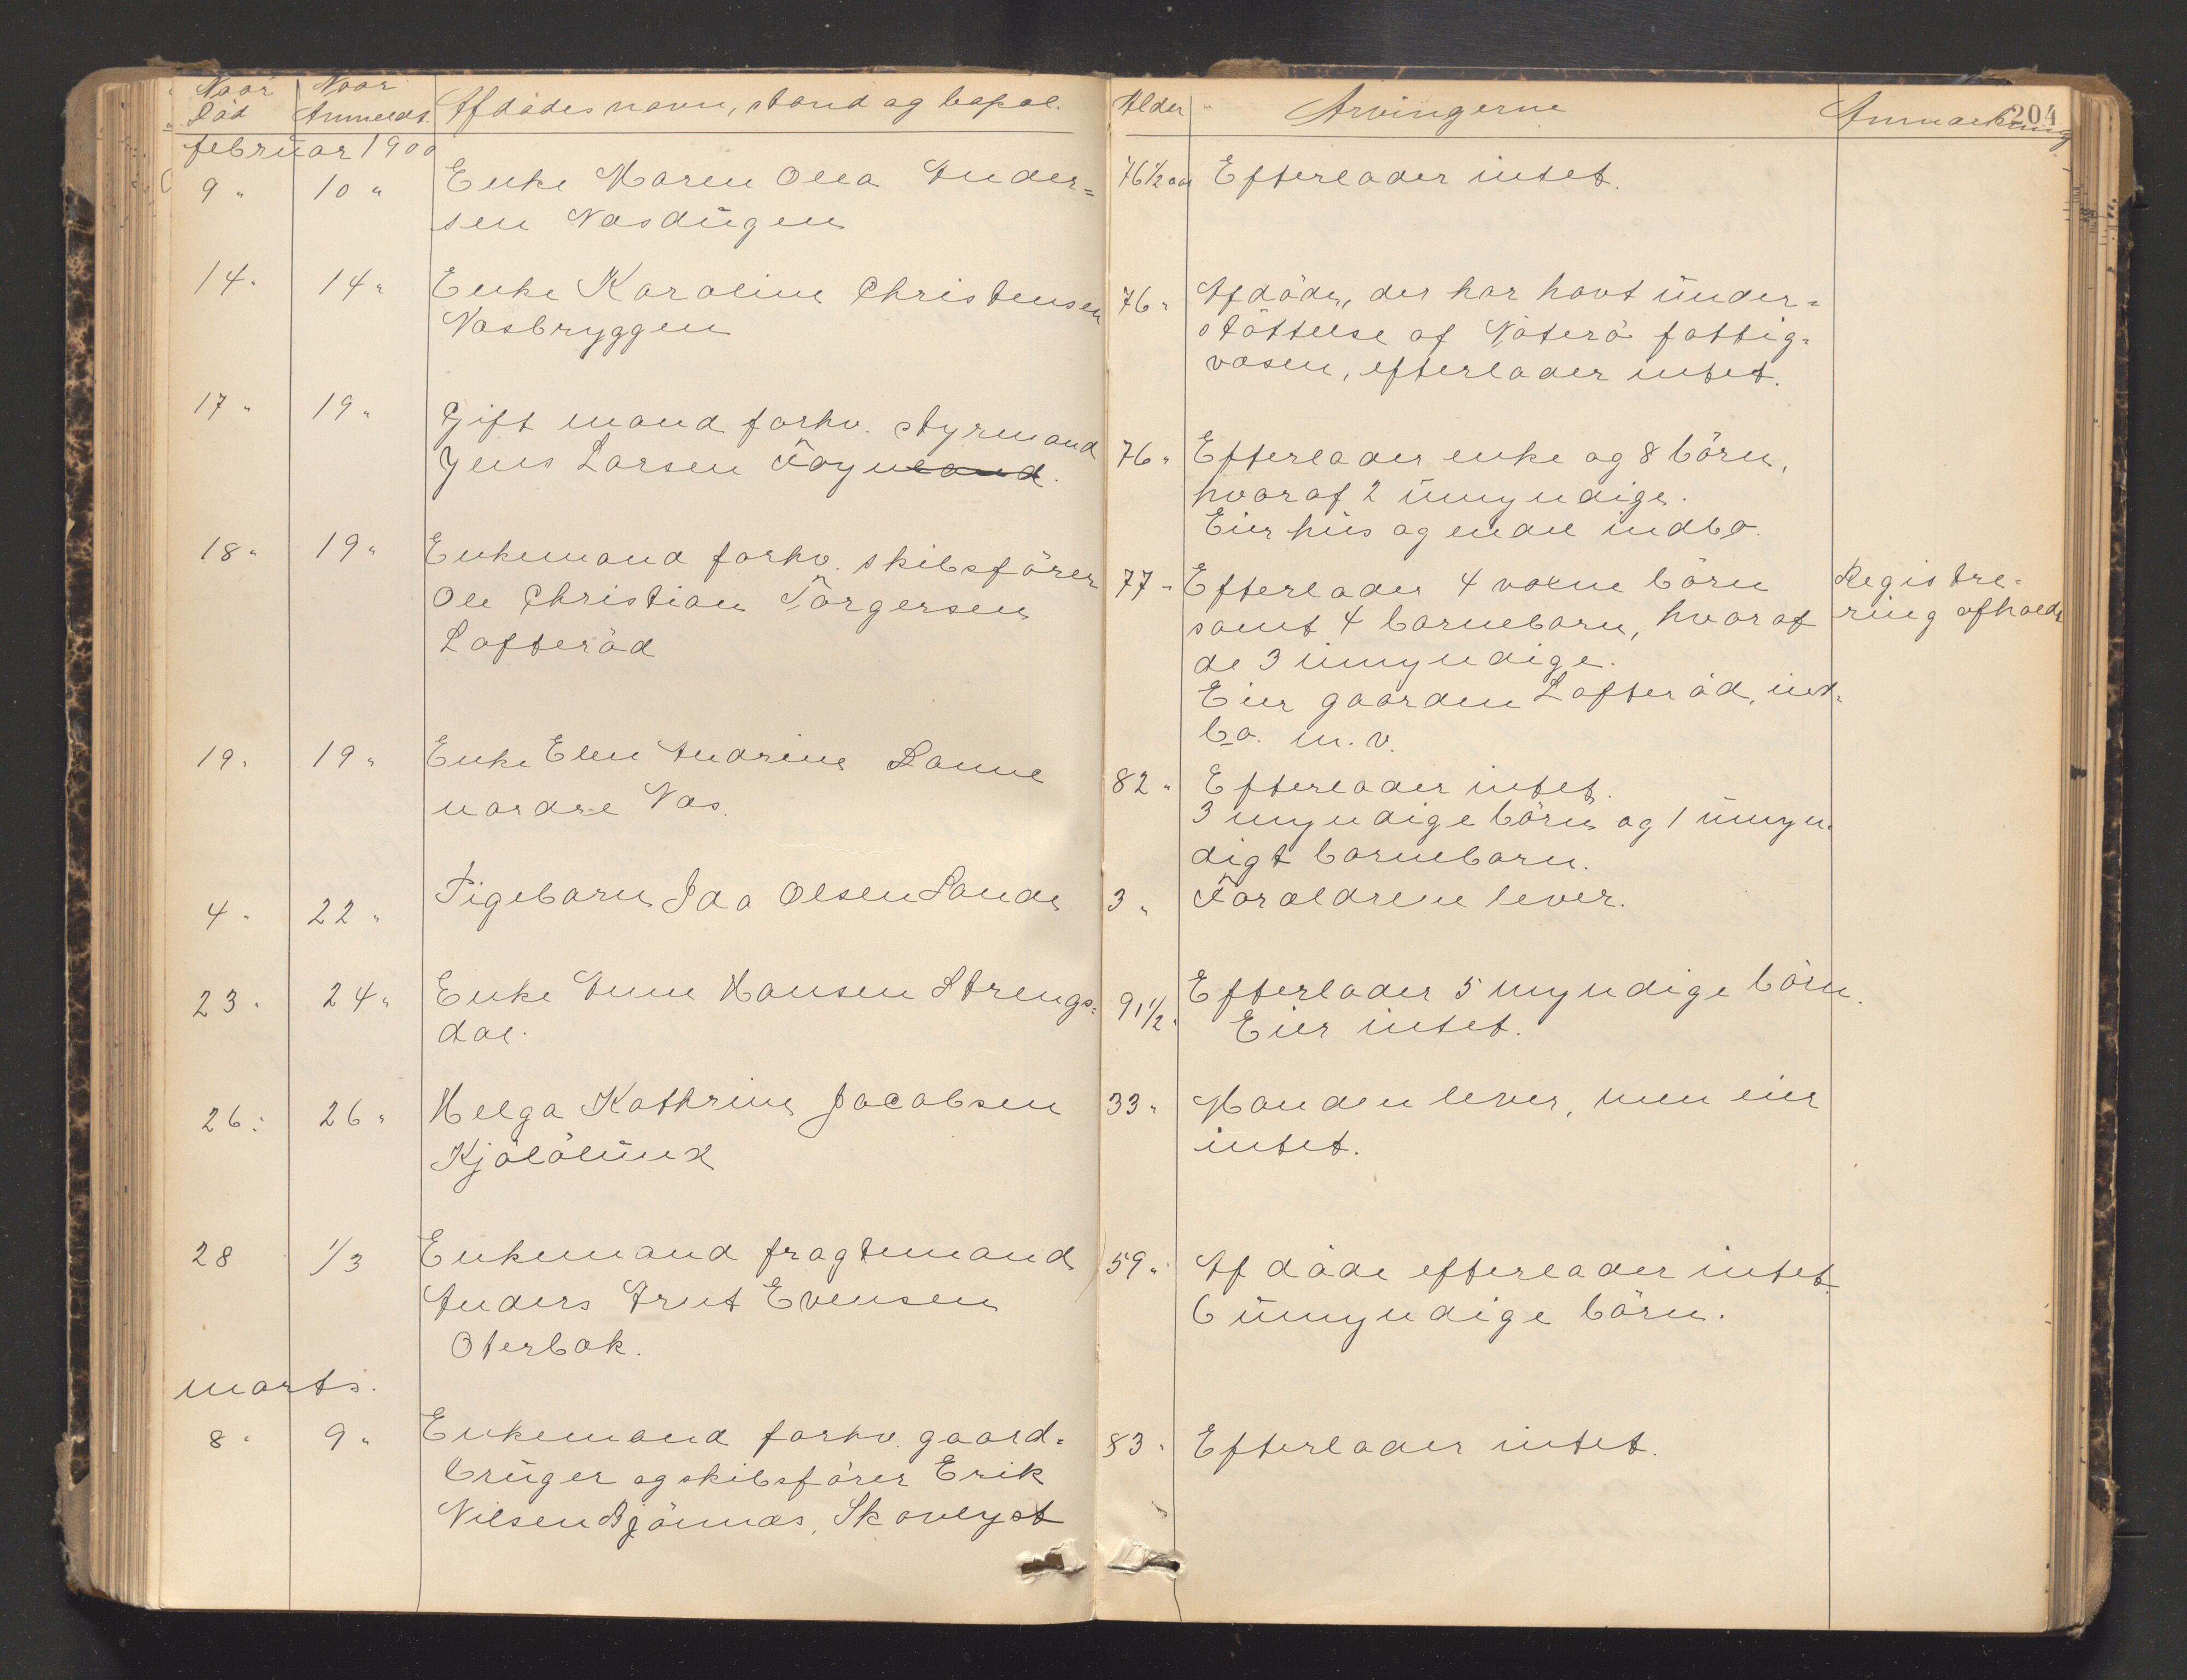 Naar Død | Naar Anmeldt. | Afdødes navn, stand og bopæl. | Alder | Arvingerne | Anmærkning 204
februar 1900
9 " | 10 " | Enke Maren Olea Ander= | 76 1/2 aar | Efterlader intet.
sen Næsdugen
14 " | 14 " | Enke Karoline Christensen | 76 " | Afdøde, der har havt under=
Næsbryggen | støttelse af Nøterø fattig=
væsen, efterlader intet.
17 " | 19 " | Gift mand forhv. styrmand | 76 " | Efterlader enke og 8 børn,
Jens Larsen Føynland. | hvoraf 2 umyndige.
Eier hus og endel indbo.
18 " | 19 " | Enkemand forhv. skibsfører | 77 " | Efterlader 4 voxne børn | Registre=
Ole Christian Torgersen | samt 4 barnebarn, hvoraf | ring afholdt
Lofterød | de 3 umyndige.
Eier gaarden Lofterød, ind=
bo. m. v.
19 " | 19 " | Enke Elen Andrine Ranne | 82 " | Efterlader intet.
nordre Næs. | 3 myndige børn og 1 umyn=
digt barnebarn.
4 " | 22 " | Pigebarn Ida Olsen Sande | 3 " | Forældrene lever.
23 " | 24 " | Enke Anne Hansen Strengs= | 91 1/2 " | Efterlader 5 myndige børn.
dal. | Eier intet.
26 " | 26 " | Helga Kathrine Jacobsen | 33 " | Manden lever, men eier
Kjølølund | intet.
28 | 1/3 | Enkemand fragtemand | 59 " | Afdøde efterlader intet.
Anders Arnt Evensen | 6 umyndige børn.
Oterbæk.
marts.
8 " | 9 " | Enkemand forhv. gaard= | 83 " | Efterlader intet.
bruger og skibsfører Erik
Nilsen Bjønnæs, Skovlyst